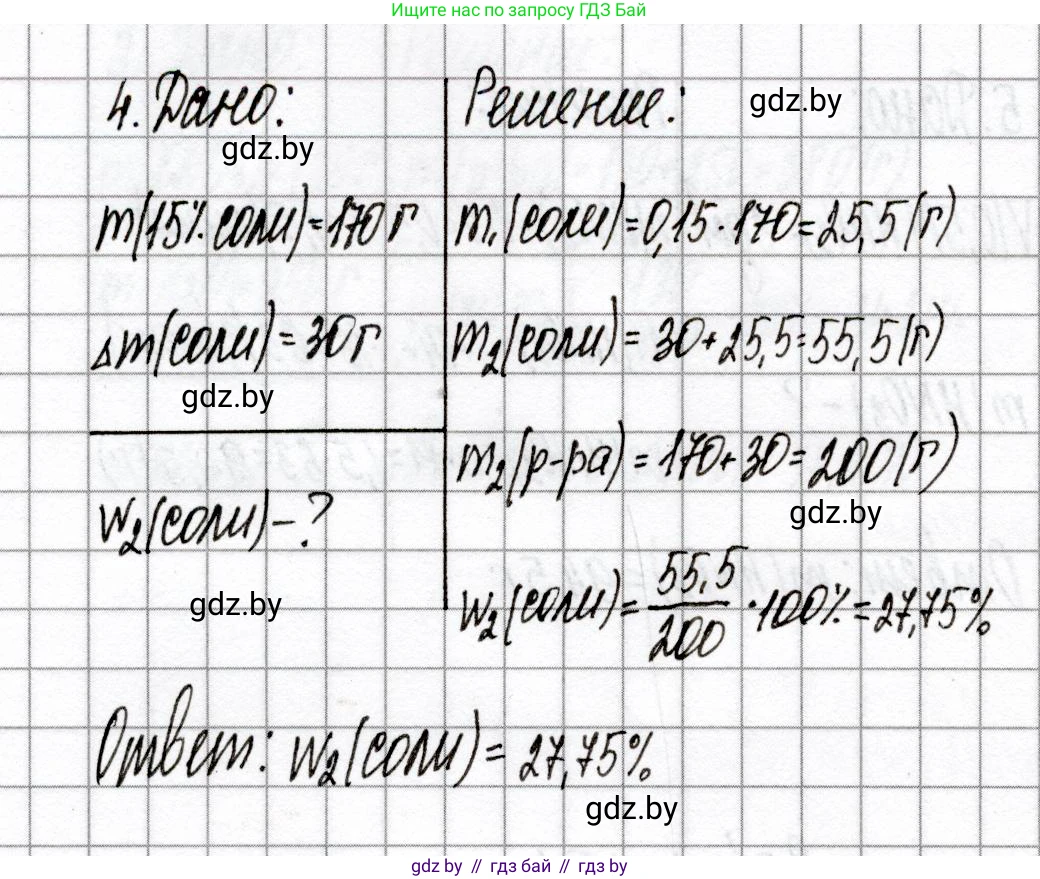 Ищите нас по запросу ГДЗ Бай
4. Дано:
gdz.by
m(15% соли)=170 г
Δm(соли) = 30 г
gdz.by
w₂(соли) - ?
gdz.by
Решение:
gdz.by
m₁(соли)=0,15·170=25,5(г)
m₂(соли) = 30+25,5=55,5(г)
m₂(р-ра) = 170+30=200(г)
gdz.by
w₂(соли)= 55,5/200 ·100% = 27,75%
Ответ: w₂(соли) = 27,75%
gdz.by
gdz.by // гдз бай // гдз by